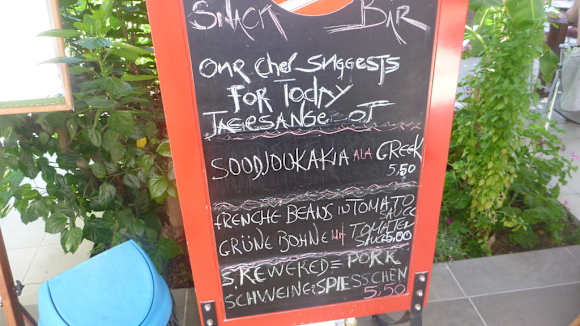 SNACK BAR
OUR CHEF SUGGESTS
FOR TODAY
TAGERSANGEBOT
SOODJOUKAKIA ALA GREEK
5,50
FRENCHE BEANS IN TOMATO
SAUCE
GRÜNE BOHNE MIT TOMATEN
SAUCE 5,00
S,REWEKED = PORK
SCHWEINE:SPIESSCHEN
5,50